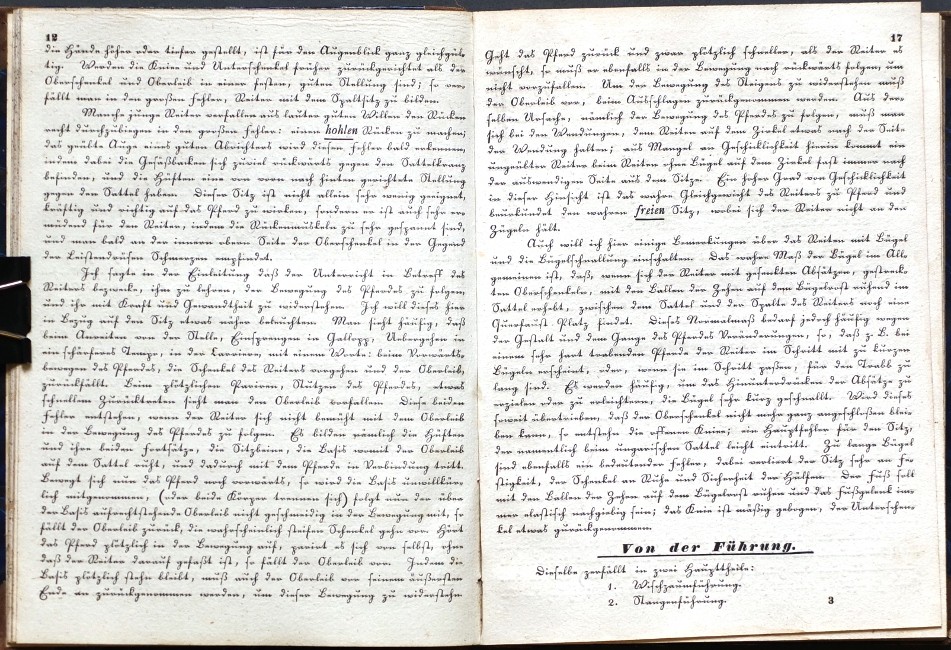 12
die Hände höher oder tiefer gestellt, ist für den Augenblick ganz gleichgül-
tig. Werden die Knie und Unterschenkel früher zurückgerichtet als der
Oberschenkel und Oberleib in einer festen, guten Stellung sind; so ver-
fällt man in den großen Fehler, Reiter mit dem Spaltsitz zu bilden.
Manche junge Reiter verfallen aus lauter guten Willen den Rücken
recht durchzubiegen in den großen Fehler: einen hohlen Rücken zu machen;
das geübte Auge eines guten Abrichters wird diesen Fehler bald erkennen,
indem dabei die Gesäßbacken sich zuviel rückwärts gegen den Sattelkranz
befinden, und die Hüften eine von vorn nach hinten gerichtete Stellung
gegen den Sattel haben. Dieser Sitz ist nicht allein sehr wenig geeignet,
kräftig und richtig auf das Pferd zu wirken, sondern er ist auch sehr er-
müdend für den Reiter, indem die Rückenmuskeln zu sehr gespannt sind,
und man bald an der innern obern Seite der Oberschenkel in der Gegend
der Leistendrüsen Schmerzen empfindet.
Ich sagte in der Einleitung daß der Unterricht in Betreff des
Reiters bezwecke, ihn zu lehren, der Bewegung des Pferdes zu folgen
und ihr mit Kraft und Gewandtheit zu widerstehen. Ich will dieses hier
in Bezug auf den Sitz etwas näher beleuchten. Man sieht häufig, daß
beim Anreiten von der Stelle, Einsprengen in Gallopp, Uebergehen in
ein schärferes Tempo, in der Carriere, mit einem Worte: beim Vorwärts-
bewegen des Pferdes, die Schenkel des Reiters vorgehen und der Oberleib,
zurückfällt. Beim plötzlichen Pariren, Stützen des Pferdes, etwas
schnellem Zurücktreten sieht man den Oberleib vorfallen. Diese beiden
Fehler entstehen, wenn der Reiter sich nicht bemüht mit dem Oberleib
in der Bewegung des Pferdes zu folgen. Es bilden nämlich die Hüften
und ihre beiden Fortsätze, die Sitzbeine, die Basis womit der Oberleib
auf dem Sattel ruht, und dadurch mit dem Pferde in Verbindung tritt.
Bewegt sich nun das Pferd nach vorwärts, so wird die Basis unwillkür-
lich mitgenommen, (oder beide Körper trennen sich) folgt nun der über
der Basis aufrechtstehende Oberleib nicht geschmeidig in der Bewegung mit, so
fällt der Oberleib zurück, die wahrscheinlich steifen Schenkel gehn vor. Hört
das Pferd plötzlich in der Bewegung auf, parirt es sich von selbst, ohne
daß der Reiter darauf gefaßt ist, so fällt der Oberleib vor. Indem die
Basis plötzlich stehn bleibt, muß auch der Oberleib vor seinem äußersten
Ende an zurückgenommen werden, um dieser Bewegung zu widerstehn
17
Geht das Pferd zurück und zwar plötzlich schneller, als der Reiter es
wünscht, so muß er ebenfalls in der Bewegung nach rückwärts folgen, um
nicht vorzufallen. Um der Bewegung des Steigens zu widerstehen muß
der Oberleib vor, beim Ausschlagen zurückgenommen werden. Aus der-
selben Ursache, nämlich der Bewegung des Pferdes zu folgen, muß man
sich bei den Wendungen, dem Reiten auf dem Zirkel etwas nach der Seite
der Wendung halten; aus Mangel an Geschicklichkeit hierin kommt ein
ungeübter Reiter beim Reiten ohne Bügel auf dem Zirkel fast immer nach
der auswendigen Seite aus dem Sitze. Ein hoher Grad von Geschicklichkeit
in dieser Hinsicht ist das wahre Gleichgewicht des Reiters zu Pferd und
beurkundet den wahren freien Sitz, wobei sich der Reiter nicht an den
Zügeln hält.
Auch will ich hier einige Bemerkungen über das Reiten mit Bügel
und die Bügelschnallung einschalten. Das wahre Maß der Bügel im All-
gemeinen ist, daß, wenn sich der Reiter mit gesenkten Absätzen, gestreck-
ten Oberschenkeln, mit den Ballen der Zehen auf dem Bügelrost ruhend im
Sattel erhebt, zwischen dem Sattel und der Spalte des Reiters noch eine
Querfaust Platz findet. Dieses Normalmaß bedarf jedoch häufig wegen
der Gestalt und dem Gange des Pferdes Veränderungen, so, daß z. B. bei
einem sehr hart trabenden Pferde der Reiter im Schritt mit zu kurzen
Bügeln erscheint, oder, wenn sie im Schritt paßen, für den Trabb zu
lang sind. Es werden häufig, um das Hinunterdrücken der Absätze zu
erzielen oder zu erleichtern, die Bügel sehr kurz geschnallt. Wird dieses
soweit übertrieben, daß der Oberschenkel nicht mehr ganz angeschloßen blei-
ben kann, so entstehen die offenen Kniee; ein Hauptfehler für den Sitz,
der namentlich beim ungarischen Sattel leicht eintritt. Zu lange Bügel
sind ebenfalls ein bedeutender Fehler, dabei verliert der Sitz sehr an Fe-
stigkeit, der Schenkel an Ruhe und Sicherheit der Hülfen. Der Fuß soll
mit den Ballen der Zehen auf dem Bügelrost ruhen und das Fußgelenk im-
mer elastisch nachgiebig sein; das Knie ist mäßig gebogen, der Unterschen-
kel etwas zurückgenommen.
Von der Führung.
Dieselbe zerfällt in zwei Haupttheile:
1. Wischzaumführung.
2. Stangenführung.
3